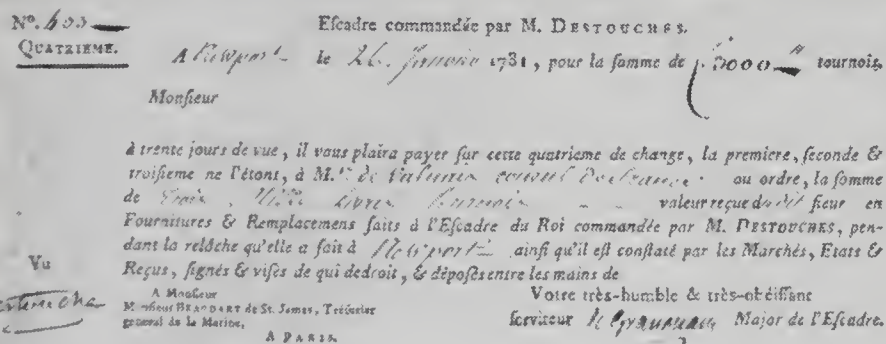 Nº. 
Escadre commandée par M. DESTOUCHES.
QUATRIEME.
A Newport le 26. Janvier 1781, pour la somme de 3000 tournois.
Monsieur
à trente jours de vue, il vous plaira payer sur cette quatrieme de change, la premiere, seconde &
troisieme ne l'étant, à M. de Valnais consul de france ou ordre, la somme
de trois Mille Livres tournois valeur reçue dudit sieur en
Fournitures & Remplacemens faits à l'Escadre du Roi commandée par M. DESTOUCHES, pen-
dant la relâche qu'elle a fait à Newport ainsi qu'il est constaté par les Marchés, Etats &
Reçus, signés & visés de qui dedroit, & déposés entre les mains de
Vu
Destouches
A Monsieur
Monsieur BEAUDART de St. James, Trésorier
general de la Marine,
A PARIS.
Votre très-humble & très-obéissant
serviteur Major de l'Escadre.